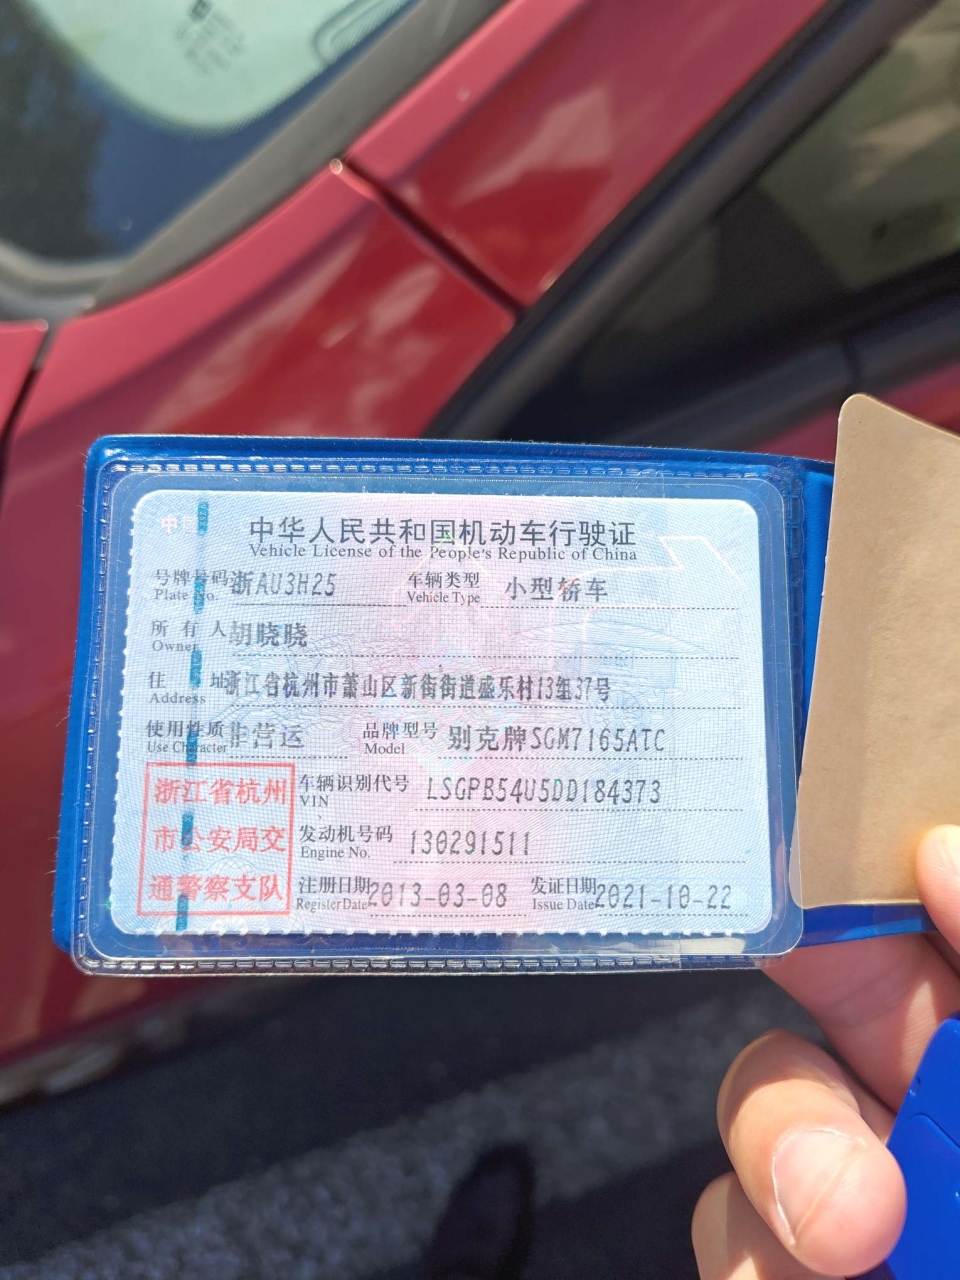 中华人民共和国机动车行驶证
Vehicle License of the People's Republic of China
号牌号码 浙AU3H25 车辆类型 小型轿车
Plate No. Vehicle Type
所有人 胡晓晓
Owner
住址 浙江省杭州市萧山区新街街道盛乐村13组37号
Address
使用性质 非营运 品牌型号 别克牌SGM7165ATC
Use Character Model
浙江省杭州
市公安局交
通警察支队
车辆识别代号 LSGPB54U5DD184373
VIN
发动机号码 130291511
Engine No.
注册日期 2013-03-08 发证日期 2021-10-22
Register Date Issue Date